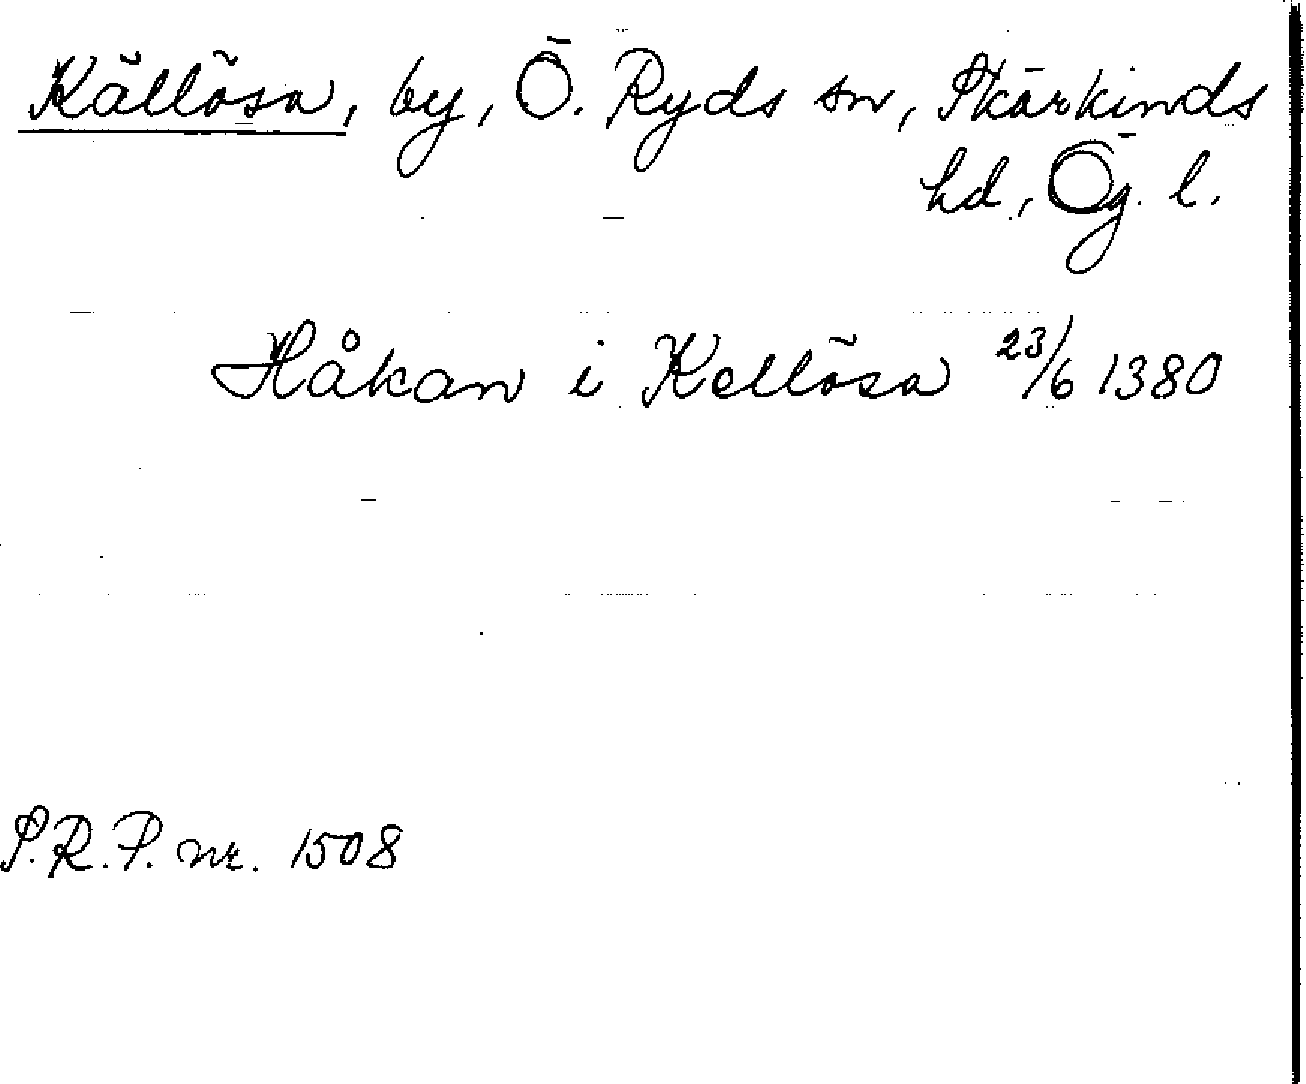 Källösa, by, Ö. Ryds sn, Skärkinds
hd, Ög. l.
Håkan i Kellösa 23/6 1380
S.R.P. nr. 1508